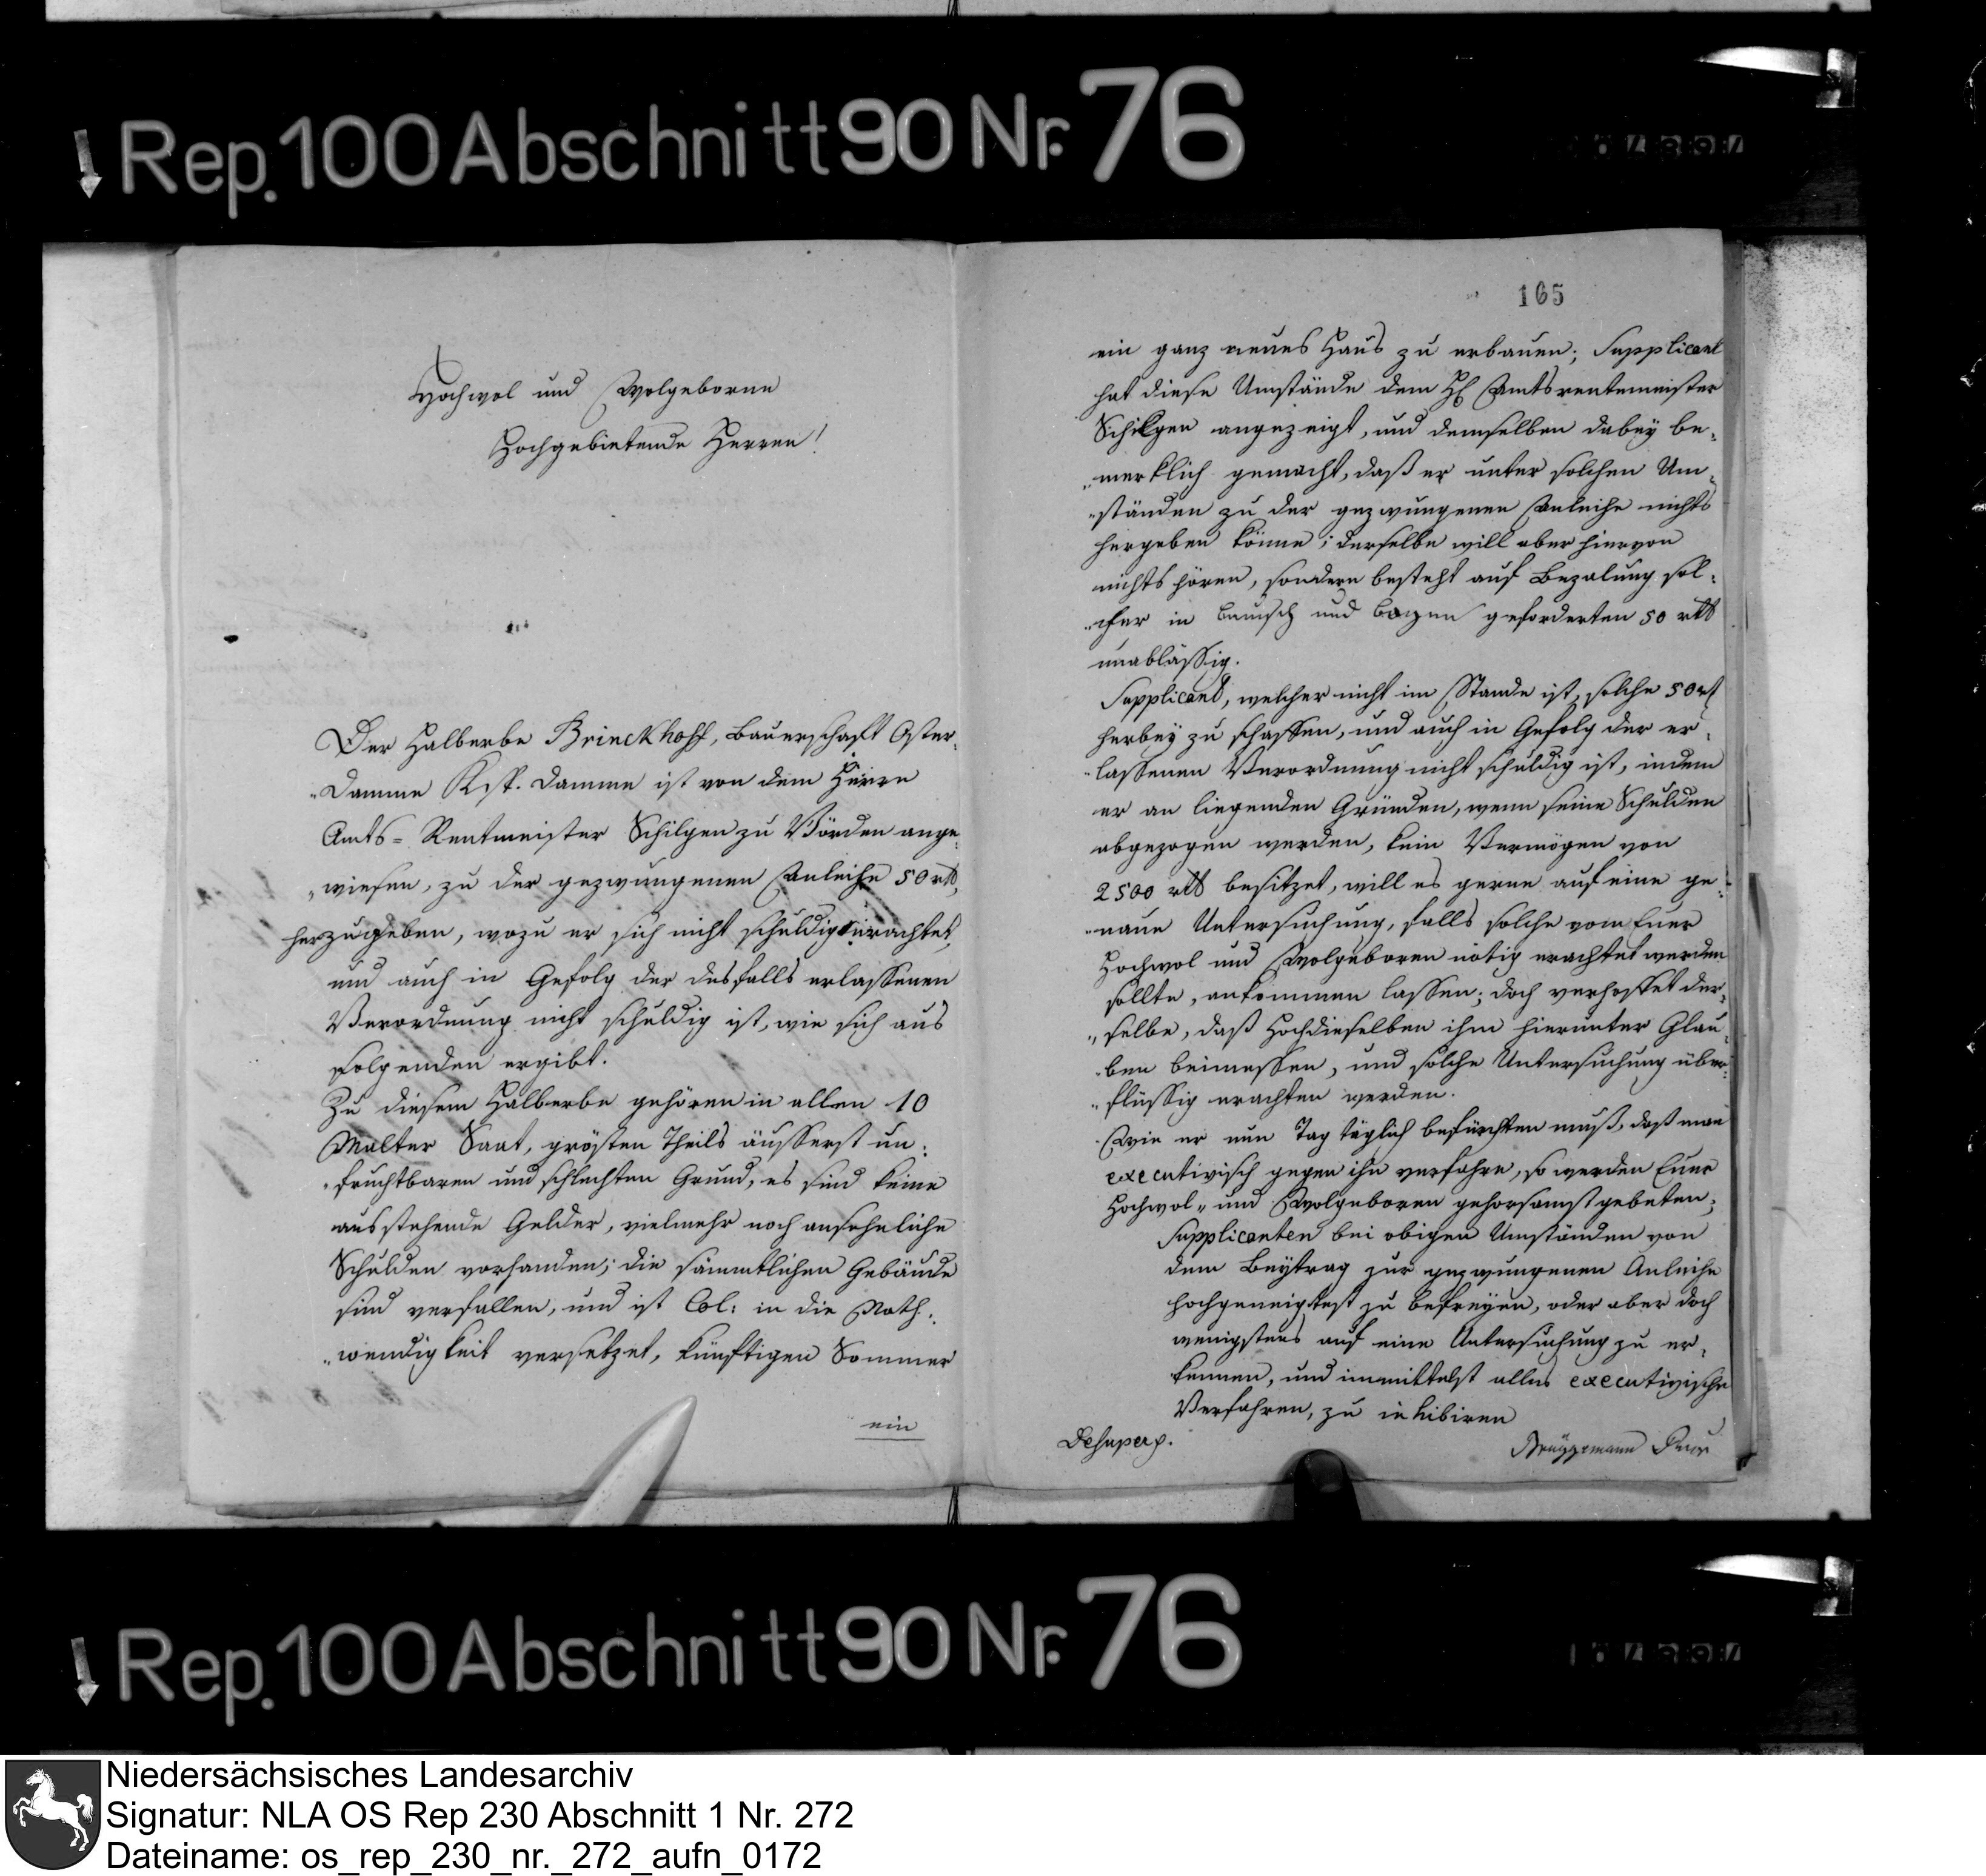 Rep. 100 Abschnitt 90 Nr. 76
Hochwol und Wolgeborne
Hochgebietende Herren!
Der Halberbe Brinckhoff, Bauerschaft Oster-
"Damme Ksp. Damme ist von dem Herrn
Amts= Rentmeister Schilgen zu Vörden ange-
"wiesen, zu der gezwungenen Anleihe 50 rtl,
herzugeben, wozu er sich nicht schuldig erachtet,
und auch in Gefolg der desfalls erlassenen
Verordnung nicht schuldig ist, wie sich aus
folgenden ergibt.
Zu diesem Halberbe gehören in allen 10
Malter Saat, grösten Theils äusserst un-
"fruchtbaren und schlechten Grund, es sind keine
ausstehende Gelder, vielmehr noch ansehnliche
Schulden vorhanden; die sämmtlichen Gebäude
sind verfallen, und ist Col: in die Noth-
"wendigkeit versetzet, künftigen Sommer
ein
165
ein ganz neues Haus zu erbauen; Supplicant
hat diese Umstände dem H. Amtsrentemeister
Schilgen angezeigt, und demselben dabey be-
"merklich gemacht, daß er unter solchen Um-
"ständen zu der gezwungenen Anleihe nichts
hergeben könne; derselbe will aber hiervon
nichts hören, sondern besteht auf Bezalung sol-
"cher in bausch und bogen geforderten 50 rtl
unablässig.
Supplicant, welcher nicht im Stande ist, solche 50 rt
herbey zu schaffen, und auch in Gefolg der er-
"lassenen Verordnung nicht schuldig ist, indem
er an liegenden Gründen, wenn seine Schulden
abgezogen werden, kein Vermögen von
2500 rtl besitzet, will es gerne auf eine ge-
"naue Untersuchung, falls solche vom Euer
Hochwol und Wolgeboren nötig erachtet werden
sollte, ankommen lassen; doch verhoffet der-
"selbe, daß Hochdieselben ihm hierunter Glau-
"ben beimessen, und solche Untersuchung über-
"flüssig erachten werden.
Wie er nun Tag täglich befürchten muß, daß man
executivisch gegen ihn verfahre, so werden Euer
Hochwol- und Wolgeboren gehorsamst gebeten;
Supplicanten bei obigen Umständen von
dem Beytrag zur gezwungenen Anleihe
hochgeneigtest zu befreyen, oder aber doch
wenigstens auf eine Untersuchung zu er-
kennen, und immittelst alles executivische
Verfahren, zu inhibiren
Desuper p.
Brüggemann
Rep. 100 Abschnitt 90 Nr. 76
Niedersächsisches Landesarchiv
Signatur: NLA OS Rep 230 Abschnitt 1 Nr. 272
Dateiname: os_rep_230_nr._272_aufn_0172